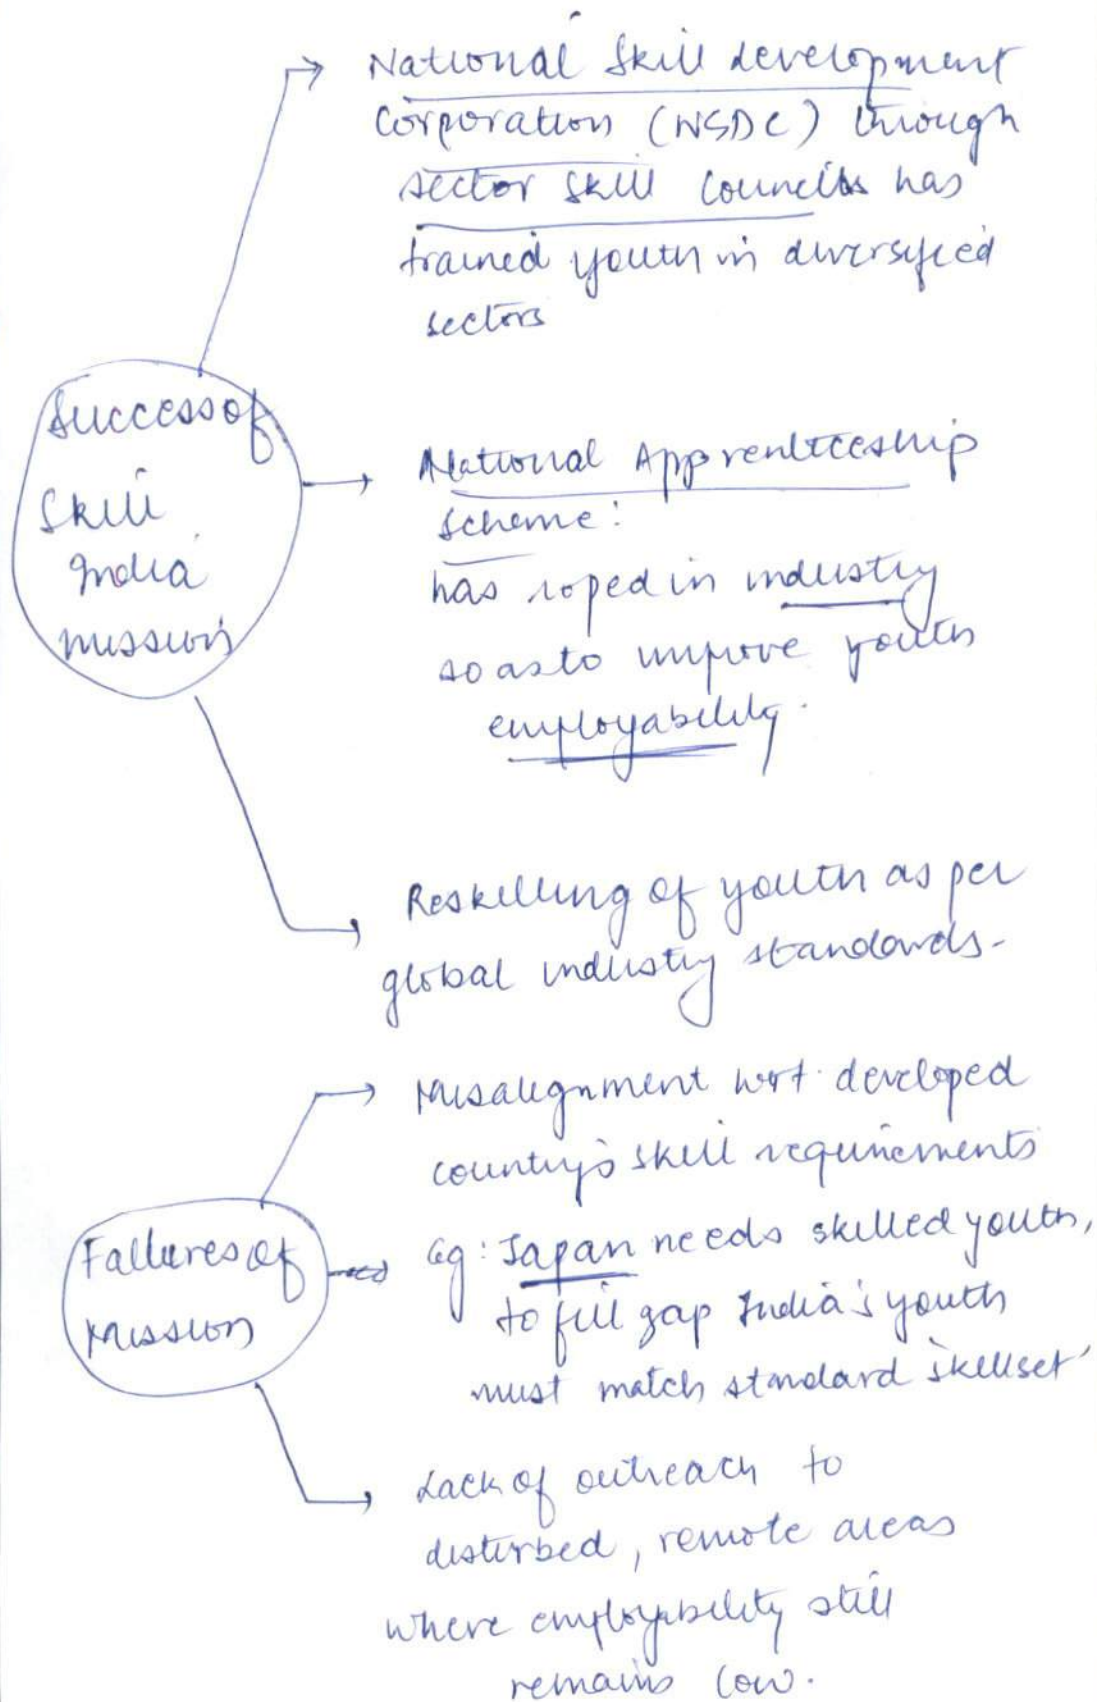 National Skill development
Corporation (NSDC) through
sector skill councils has
trained youth in diversified
sectors
Success of
Skill
India
mission
National Apprenticeship
scheme:
has roped in industry
so as to improve youth
employability.
Reskilling of youth as per
global industry standards.
Misalignment wrt. developed
country's skill requirements
Failures of
Mission
eg: Japan needs skilled youth,
to fill gap India's youth
must match standard 'skillset'
Lack of outreach to
disturbed, remote areas
where employability still
remains low.